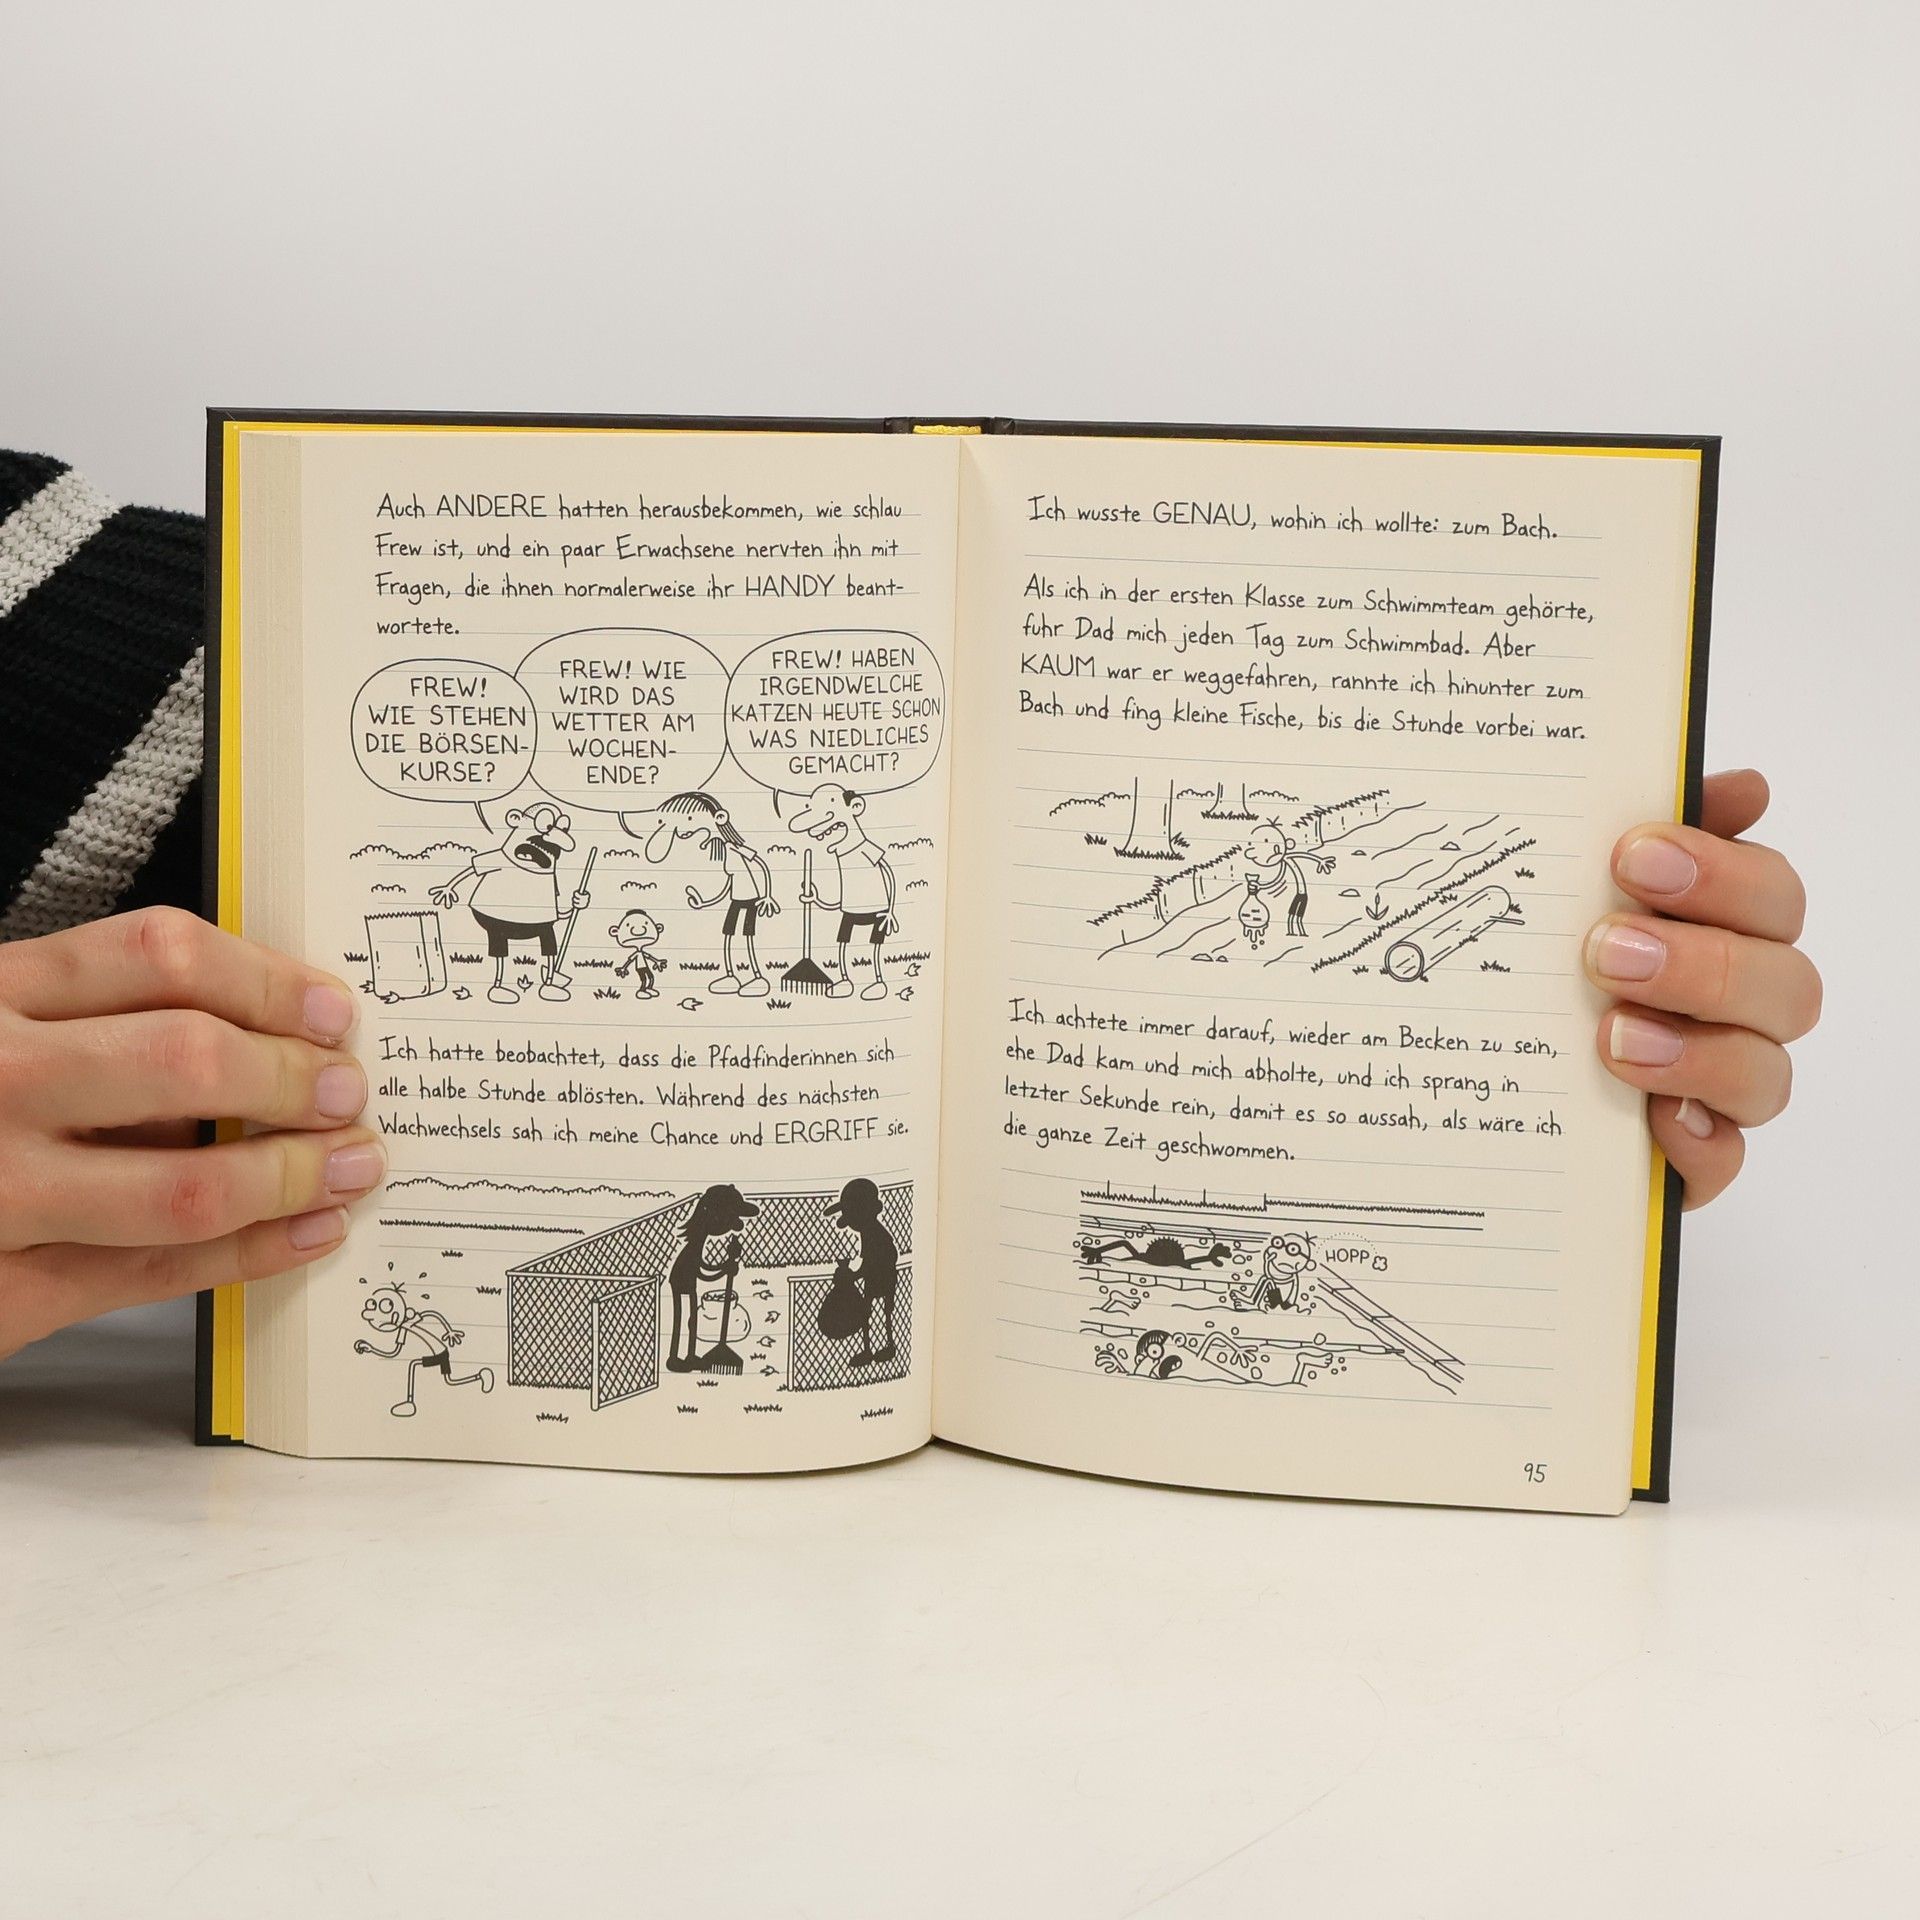 Auch ANDERE hatten herausbekommen, wie schlau
Frew ist, und ein paar Erwachsene nervten ihn mit
Fragen, die ihnen normalerweise ihr HANDY beant-
wortete.
FREW!
WIE STEHEN
DIE BÖRSEN-
KURSE?
FREW! WIE
WIRD DAS
WETTER AM
WOCHEN-
ENDE?
FREW! HABEN
IRGENDWELCHE
KATZEN HEUTE SCHON
WAS NIEDLICHES
GEMACHT?
Ich hatte beobachtet, dass die Pfadfinderinnen sich
alle halbe Stunde ablösten. Während des nächsten
Wachwechsels sah ich meine Chance und ERGRIFF sie.
Ich wusste GENAU, wohin ich wollte: zum Bach.
Als ich in der ersten Klasse zum Schwimmteam gehörte,
fuhr Dad mich jeden Tag zum Schwimmbad. Aber
KAUM war er weggefahren, rannte ich hinunter zum
Bach und fing kleine Fische, bis die Stunde vorbei war.
Ich achtete immer darauf, wieder am Becken zu sein,
ehe Dad kam und mich abholte, und ich sprang in
letzter Sekunde rein, damit es so aussah, als wäre ich
die ganze Zeit geschwommen.
HOPP
95